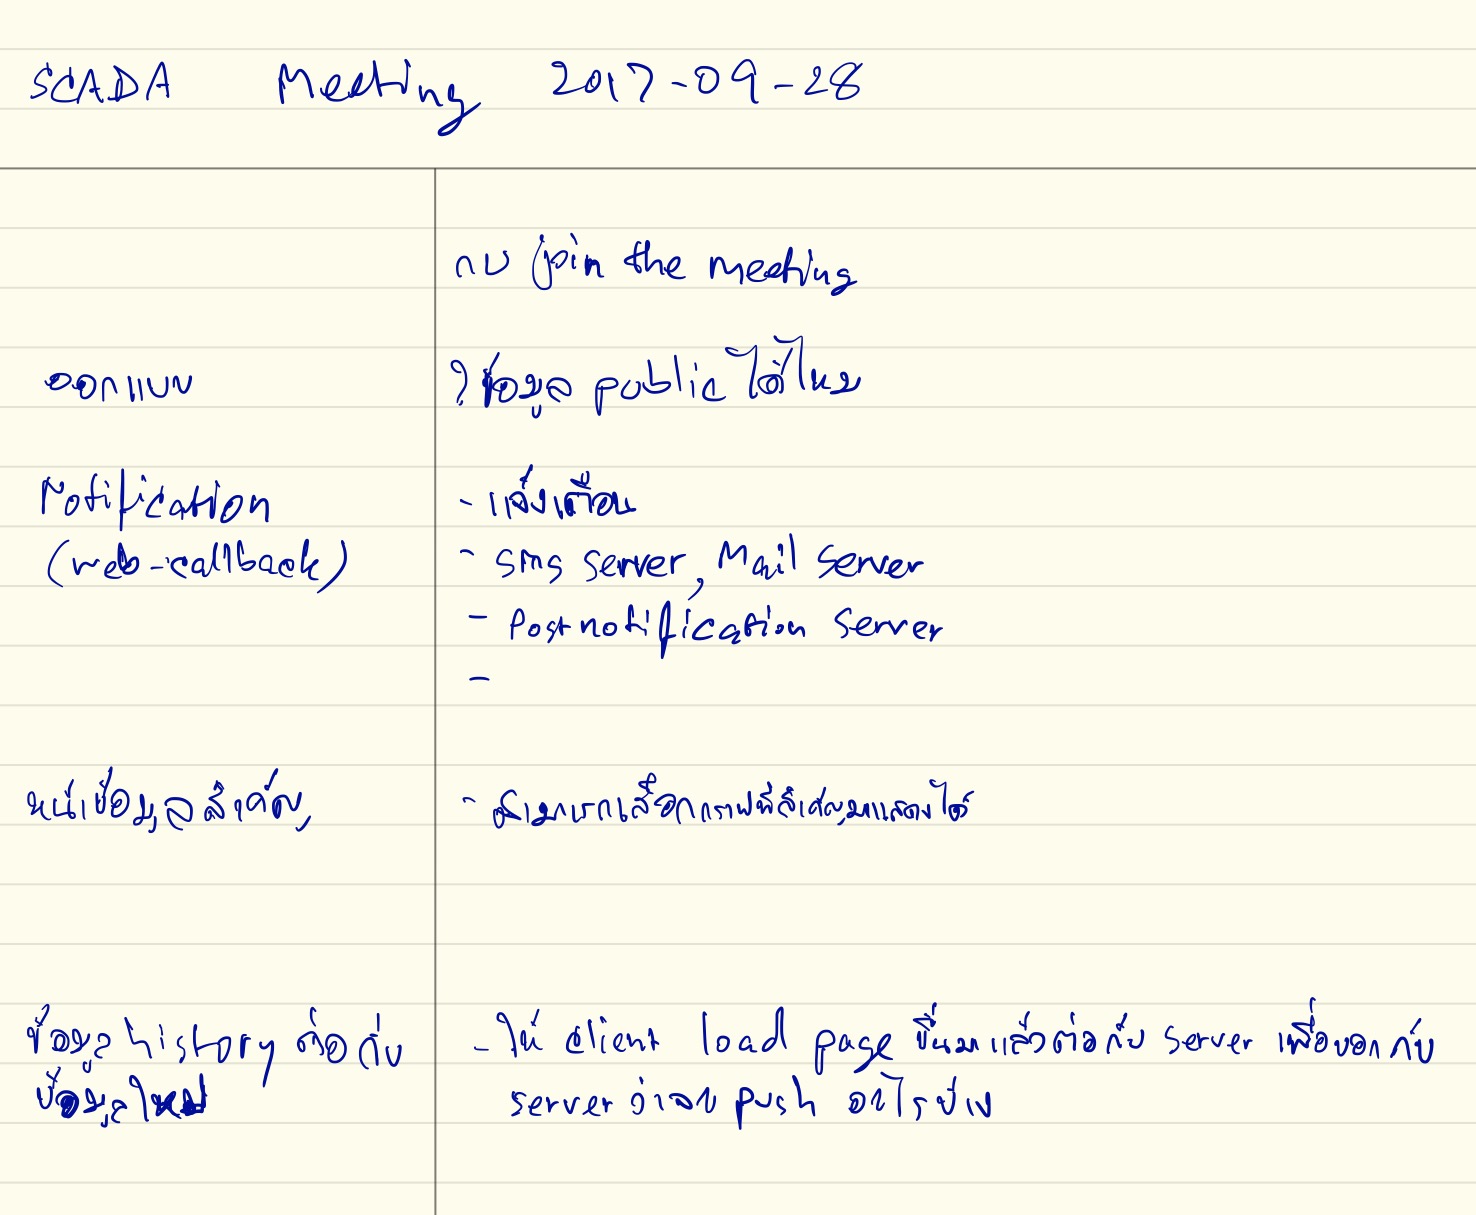 SCADA Meeting 2017-09-28
กบ join the meeting
ออกแบบ
? ข้อมูล public ได้ไหม
Notification
(web-callback)
- แจ้งเตือน
- SMS Server, Mail Server
- Post notification Server
-
หน้าข้อมูลสำคัญ
- สามารถเลือกกราฟที่สำคัญมาแสดงได้
ข้อมูล history ต่อกับ
ข้อมูลใหม่
- ให้ client load page ขึ้นมาแล้วต่อกับ server เพื่อบอกกับ
server ว่า push อะไรบ้าง